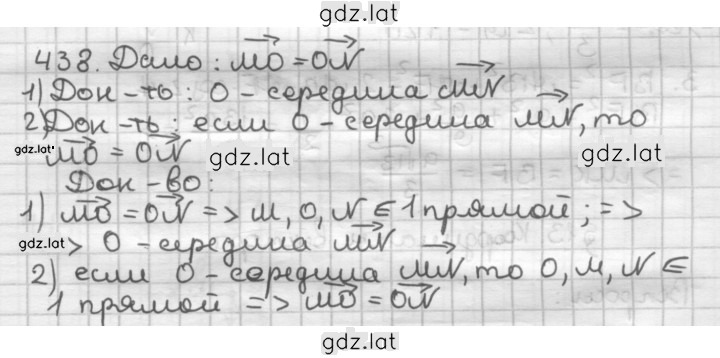 gdz.lat
438. Дано: MO = ON
1) Док-ть: O - середина MN
2) Док-ть: если O - середина MN, то
gdz.lat MO = ON gdz.lat gdz.lat
Док-во:
1) MO = ON => M, O, N ∈ 1 прямой; =>
gdz.lat > O - середина MN
2) если O - середина MN, то O, M, N ∈
1 прямой => MO = ON
gdz.lat